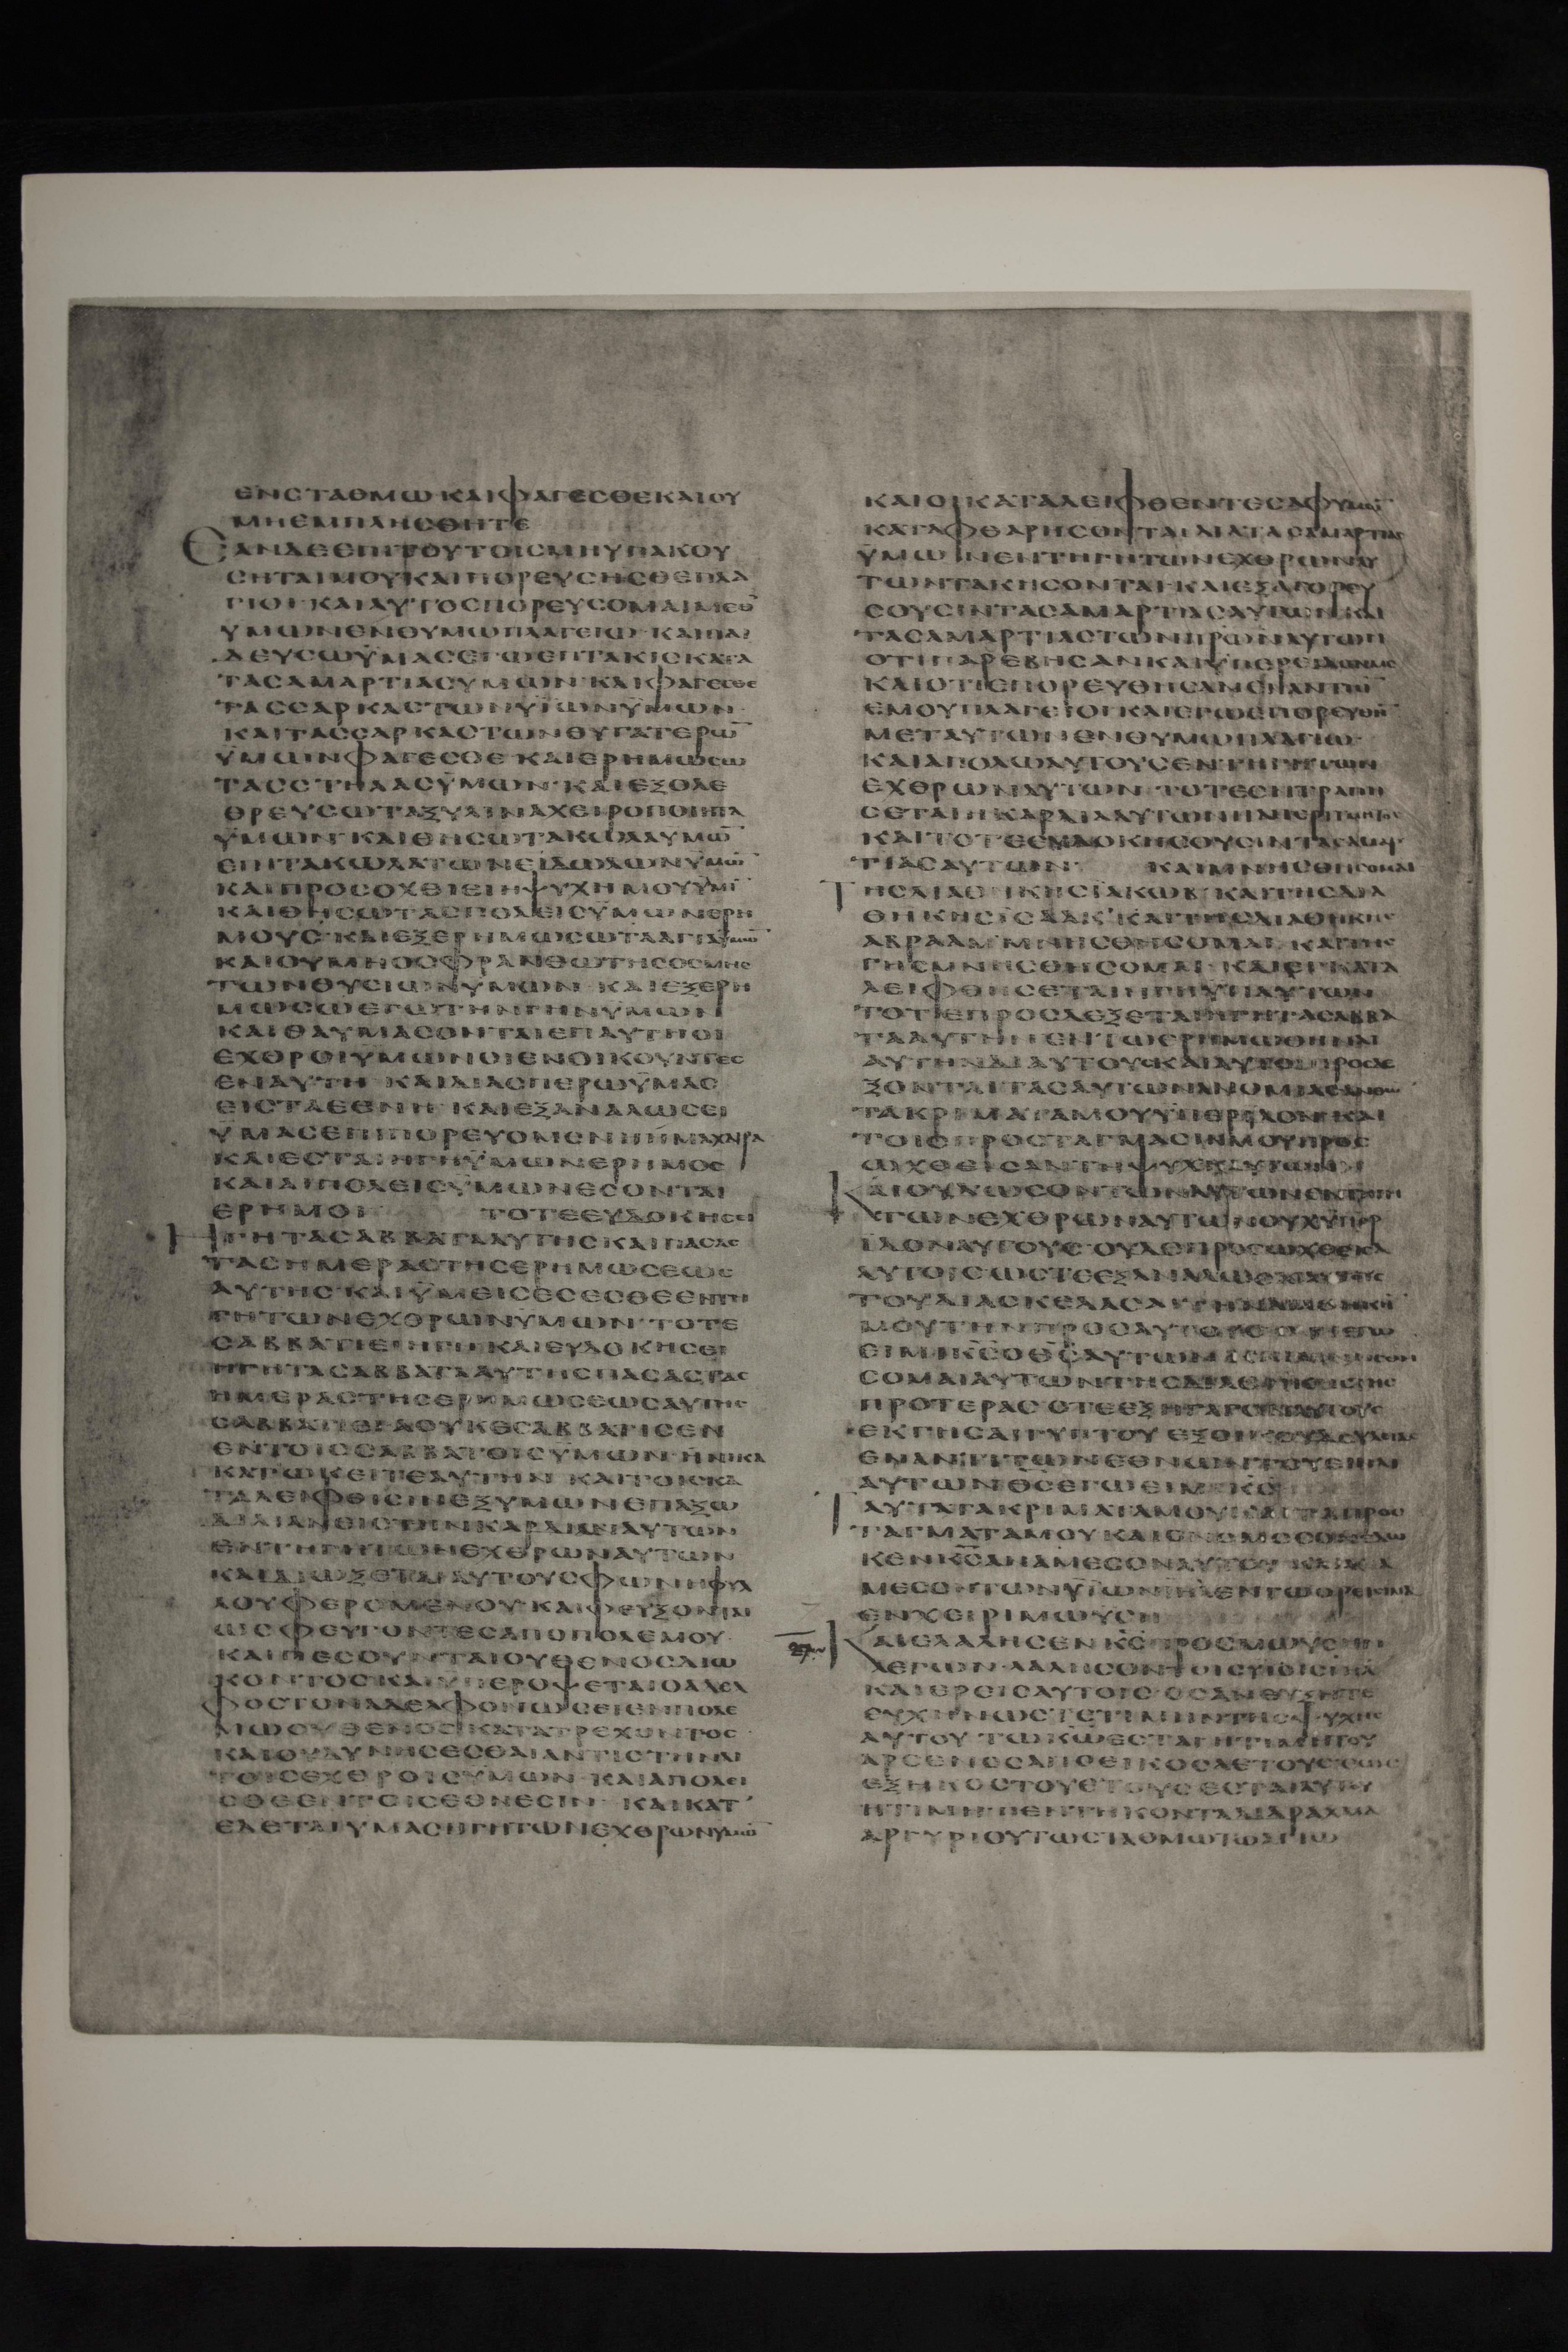 ΕΝСΤΑΘΜωΚΑΙΦΑΓΕСΘΕΚΑΙΟΥ
ΜΗΕΜΠΛΗСΘΗΤΕ
ΕΑΝΔΕΕΠΙΤΟΥΤΟΙСΜΗΥΠΑΚΟΥ
СΗΤΑΙΜΟΥΚΑΙΠΟΡΕΥСΗСΘΕΠΛΑ
ΓΙΟΙΚΑΙΑΥΤΟСΠΟΡΕΥСΟΜΑΙΜΕΘ
ΥΜωΝΕΝΘΥΜωΠΛΑΓΕΙω ΚΑΙΠΑΙ
ΔΕΥСωΫΜΑСΕΓωΕΠΤΑΚΙСΚΑΤΑ
ΤΑСΑΜΑΡΤΙΑСΥΜωΝ ΚΑΙΦΑΓΕСΘΕ
ΤΑССΑΡΚΑСΤωΝΥΪωΝΫΜωΝ
ΚΑΙΤΑССΑΡΚΑСΤωΝΘΥΓΑΤΕΡω̅
ΫΜωΝΦΑΓΕСΘΕ ΚΑΙΕΡΗΜωСω
ΤΑССΤΗΛΑСΫΜωΝ ΚΑΙΕΞΟΛΕ
ΘΡΕΥСωΤΑΞΥΛΙΝΑΧΕΙΡΟΠΟΙΗΤΑ
ΫΜωΝ ΚΑΙΘΗСωΤΑΚωΛΑΥΜω̅
ΕΠΙΤΑΚωΛΑΤωΝΕΙΔωΛωΝΫΜω̅
ΚΑΙΠΡΟСΟΧΘΙΕΙΗΨΥΧΗΜΟΥΫΜΙ̅
ΚΑΙΘΗСωΤΑСΠΟΛΕΙСΫΜωΝΕΡΗ
ΜΟΥС ΚΑΙΕΞΕΡΗΜωСωΤΑΑΓΙΑΫΜω̅
ΚΑΙΟΥΜΗΟСΦΡΑΝΘωΤΗСΟСΜΗС
ΤωΝΘΥСΙωΝΫΜωΝ ΚΑΙΕΞΕΡΗ
ΜωСωΕΓωΤΗΝΓΗΝΫΜωΝ
ΚΑΙΘΑΥΜΑСΟΝΤΑΙΕΠΑΥΤΗΟΙ
ΕΧΘΡΟΙΫΜωΝΟΙΕΝΟΙΚΟΥΝΤΕС
ΕΝΑΥΤΗ ΚΑΙΔΙΑСΠΕΡωΫΜΑС
ΕΙСΤΑΕΘΝΗ ΚΑΙΕΞΑΝΑΛωСΕΙ
ΫΜΑСΕΠΙΠΟΡΕΥΟΜΕΝΗΗΜΑΧΑΙΡΑ
ΚΑΙΕСΤΑΙΗΓΗΫΜωΝΕΡΗΜΟС
ΚΑΙΑΙΠΟΛΕΙСΫΜωΝΕСΟΝΤΑΙ
ΕΡΗΜΟΙ ΤΟΤΕΕΥΔΟΚΗСΕΙ
ΗΓΗΤΑСΑΒΒΑΤΑΑΥΤΗСΚΑΙΠΑСΑС
ΤΑСΗΜΕΡΑСΤΗСΕΡΗΜωСΕωС
ΑΥΤΗСΚΑΙΫΜΕΙСΕСΕСΘΕΕΝΤΗ
ΓΗΤωΝΕΧΘΡωΝΫΜωΝ ΤΟΤΕ
СΑΒΒΑΤΙΕΙΗΓΗ ΚΑΙΕΥΔΟΚΗСΕΙ
ΗΓΗΤΑСΑΒΒΑΤΑΑΥΤΗСΠΑСΑСΤΑС
ΗΜΕΡΑСΤΗСΕΡΗΜωСΕωСΑΥΤΗС
СΑΒΒΑΤΙΕΙΑΟΥΚΕСΑΒΒΑΤΙСΕΝ
ΕΝΤΟΙССΑΒΒΑΤΟΙСΫΜωΝΗΝΙΚΑ
ΚΑΤωΚΕΙΤΕΑΥΤΗΝ ΚΑΙΤΟΙСΚΑ
ΤΑΛΕΙΦΘΙСΙΝΕΞΥΜωΝΕΠΑΞω
ΔΙΛΙΑΝΕΙСΤΗΝΚΑΡΔΙΑΝΑΥΤωΝ
ΕΝΤΗΓΗΤωΝΕΧΘΡωΝΑΥΤωΝ
ΚΑΙΔΙωΞΕΤΑΙΑΥΤΟΥСΦωΝΗΦΥΛ
ΛΟΥΦΕΡΟΜΕΝΟΥΚΑΙΦΕΥΞΟΝΤΑΙ
ωСΦΕΥΓΟΝΤΕСΑΠΟΠΟΛΕΜΟΥ
ΚΑΙΠΕСΟΥΝΤΑΙΟΥΘΕΝΟСΔΙω
ΚΟΝΤΟСΚΑΙΫΠΕΡΟΨΕΤΑΙΟΑΔΕΛ
ΦΟСΤΟΝΑΔΕΛΦΟΝωСΕΙΕΝΠΟΛΕ
ΜωΟΥΘΕΝΟСΚΑΤΑΤΡΕΧΟΝΤΟС
ΚΑΙΟΥΔΥΝΗСΕСΘΑΙΑΝΤΙСΤΗΝΑΙ
ΤΟΙСΕΧΘΡΟΙСΥΜωΝ ΚΑΙΑΠΟΛΕΙ
СΘΕΕΝΤΟΙСΕΘΝΕСΙΝ ΚΑΙΚΑΤ
ΕΔΕΤΑΙΥΜΑСΗΓΗΤωΝΕΧΘΡωΝΥΜω̅
ΚΑΙΟΙΚΑΤΑΛΕΙΦΘΕΝΤΕСΑΦΥΜω̅
ΚΑΤΑΦΘΑΡΗСΟΝΤΑΙΔΙΑΤΑСΑΜΑΡΤΙΑС
ΫΜωΝΕΝΤΗΓΗΤωΝΕΧΘΡωΝΑΥ
ΤωΝΤΑΚΗСΟΝΤΑΙ ΚΑΙΕΞΑΓΟΡΕΥ
СΟΥСΙΝΤΑСΑΜΑΡΤΙΑСΑΥΤωΝ ΚΑΙ
ΤΑСΑΜΑΡΤΙΑСΤωΝΠΡ̅ωΝΑΥΤωΝ
ΟΤΙΠΑΡΕΒΗСΑΝΚΑΙΫΠΕΡΕΙΔΟΝΜΕ
ΚΑΙΟΤΙΕΠΟΡΕΥΘΗСΑΝΕΝΑΝΤΙΟ̅
ΕΜΟΥΠΛΑΓΕΙΟΙ ΚΑΙΕΓωΕΠΟΡΕΥΘΗ̅
ΜΕΤΑΥΤωΝΕΝΘΥΜωΠΛΑΓΙω
ΚΑΙΑΠΟΛωΑΥΤΟΥСΕΝΤΗΓΗΤωΝ
ΕΧΘΡωΝΑΥΤωΝ ΤΟΤΕΕΝΤΡΑΠΗ
СΕΤΑΙΗΚΑΡΔΙΑΑΥΤωΝΗΑΠΕΡΙΤΜΗΤΟС
ΚΑΙΤΟΤΕΕΥΔΟΚΗСΟΥСΙΝΤΑСΑΜΑΡ
ΤΙΑСΑΥΤωΝ ΚΑΙΜΝΗСΘΗСΟΜΑΙ
ΤΗСΔΙΑΘΗΚΗСΪΑΚωΒ ΚΑΙΤΗСΔΙΑ
ΘΗΚΗСΙСΑΑΚ ΚΑΙΤΗСΔΙΑΘΗΚΗС
ΑΒΡΑΑΜΜΝΗСΘΗСΟΜΑΙ ΚΑΙΤΗС
ΓΗСΜΝΗСΘΗСΟΜΑΙ ΚΑΙΕΓΚΑΤΑ
ΛΕΙΦΘΗСΕΤΑΙΗΓΗΫΠΑΥΤωΝ
ΤΟΤΕΠΡΟСΔΕΞΕΤΑΙΗΓΗΤΑСΑΒΒΑ
ΤΑΑΥΤΗСΕΝΤωΕΡΗΜωΘΗΝΑΙ
ΑΥΤΗΝΔΙΑΥΤΟΥСΚΑΙΑΥΤΟΙΠΡΟСΔΕ
ΞΟΝΤΑΙΤΑСΑΥΤωΝΑΝΟΜΙΑС
ΤΑΚΡΙΜΑΤΑΜΟΥΫΠΕΡΕΙΔΟΝ ΚΑΙ
ΤΟΙСΠΡΟСΤΑΓΜΑСΙΝΜΟΥΠΡΟС
ωΧΘΕΙСΑΝΤΗΨΥΧΗΑΥΤωΝ
ΚΑΙΟΥΔωСΟΝΤωΝΑΥΤωΝΕΝΤΗΓΗ
ΤωΝΕΧΘΡωΝΑΥΤωΝΟΥΧΫΠΕΡ
ΙΔΟΝΑΥΤΟΥС ΟΥΔΕΠΡΟСωΧΘΙСΑ
ΑΥΤΟΙСωСΤΕΕΞΑΝΑΛωСΑΙΑΥΤΟΥС
ΤΟΥΔΙΑСΚΕΔΑСΑΙΤΗΝΔΙΑΘΗΚΗ̅
ΜΟΥΤΗΝΠΡΟСΑΥΤΟΥС ΟΤΙΕΓω
ΕΙΜΙΚ̅С̅ΟΘ̅С̅ΑΥΤωΝ
СΟΜΑΙΑΥΤωΝΤΗСΔΙΑΘΗΚΗСΤΗС
ΠΡΟΤΕΡΑС ΟΤΕΕΞΗΓΑΓΟΝΑΥΤΟΥС
ΕΚΓΗСΑΙΓΥΠΤΟΥ ΕΞΟΙΚΟΥΔΟΥΛΙΑС
ΕΝΑΝΤΙΤωΝΕΘΝωΝΤΟΥΕΙΝΑΙ
ΑΥΤωΝΘ̅С̅ΕΓωΕΙΜΙΚ̅С̅
ΤΑΥΤΑΤΑΚΡΙΜΑΤΑΜΟΥΚΑΙΤΑΠΡΟС
ΤΑΓΜΑΤΑΜΟΥΚΑΙΟΝΟΜΟСΟΝΕΔω
ΚΕΝΚ̅С̅ΑΝΑΜΕСΟΝΑΥΤΟΥ ΚΑΙΑΝΑ
ΜΕСΟΝΤωΝΥΪωΝΙΗΛ̅ΕΝΤωΟΡΕΙСΙΝΑ
ΕΝΧΕΙΡΙΜωΥСΗ
ΚΑΙΕΛΑΛΗСΕΝΚ̅С̅ΠΡΟСΜωΥСΗ̅
ΛΕΓωΝ ΛΑΛΗСΟΝΤΟΙСΥΙΟΙСΙΗΛ̅
ΚΑΙΕΡΕΙСΑΥΤΟΙС ΟСΑΝΕΥΞΗΤΕ
ΕΥΧΗΝωСΤΕΤΙΜΗΝΤΗСΨΥΧΗС
ΑΥΤΟΥ ΤωΚ̅ω̅ΕСΤΑΙΗΤΙΜΗΤΟΥ
ΑΡСΕΝΟСΑΠΟΕΙΚΟСΑΕΤΟΥСΕωС
ΕΞΗΚΟСΤΟΥΕΤΟΥСΕСΤΑΙΑΥΤΟΥ
ΗΤΙΜΗΠΕΝΤΗΚΟΝΤΑΔΙΔΡΑΧΜΑ
ΑΡΓΥΡΙΟΥΤωСΤΑΘΜωΤωΑΓΙω